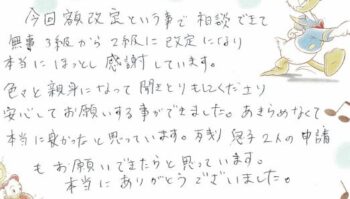 今回額改定という事で相談できて
無事3級から2級に改定になり
本当にほっとし感謝しています。
色々と親身になって聞きとりもしてくださり
安心してお願いする事ができました。あきらめなくて
本当に良かったと思っています。又 息子2人の申請
もお願いできたらと思っています。
本当にありがとうございました。